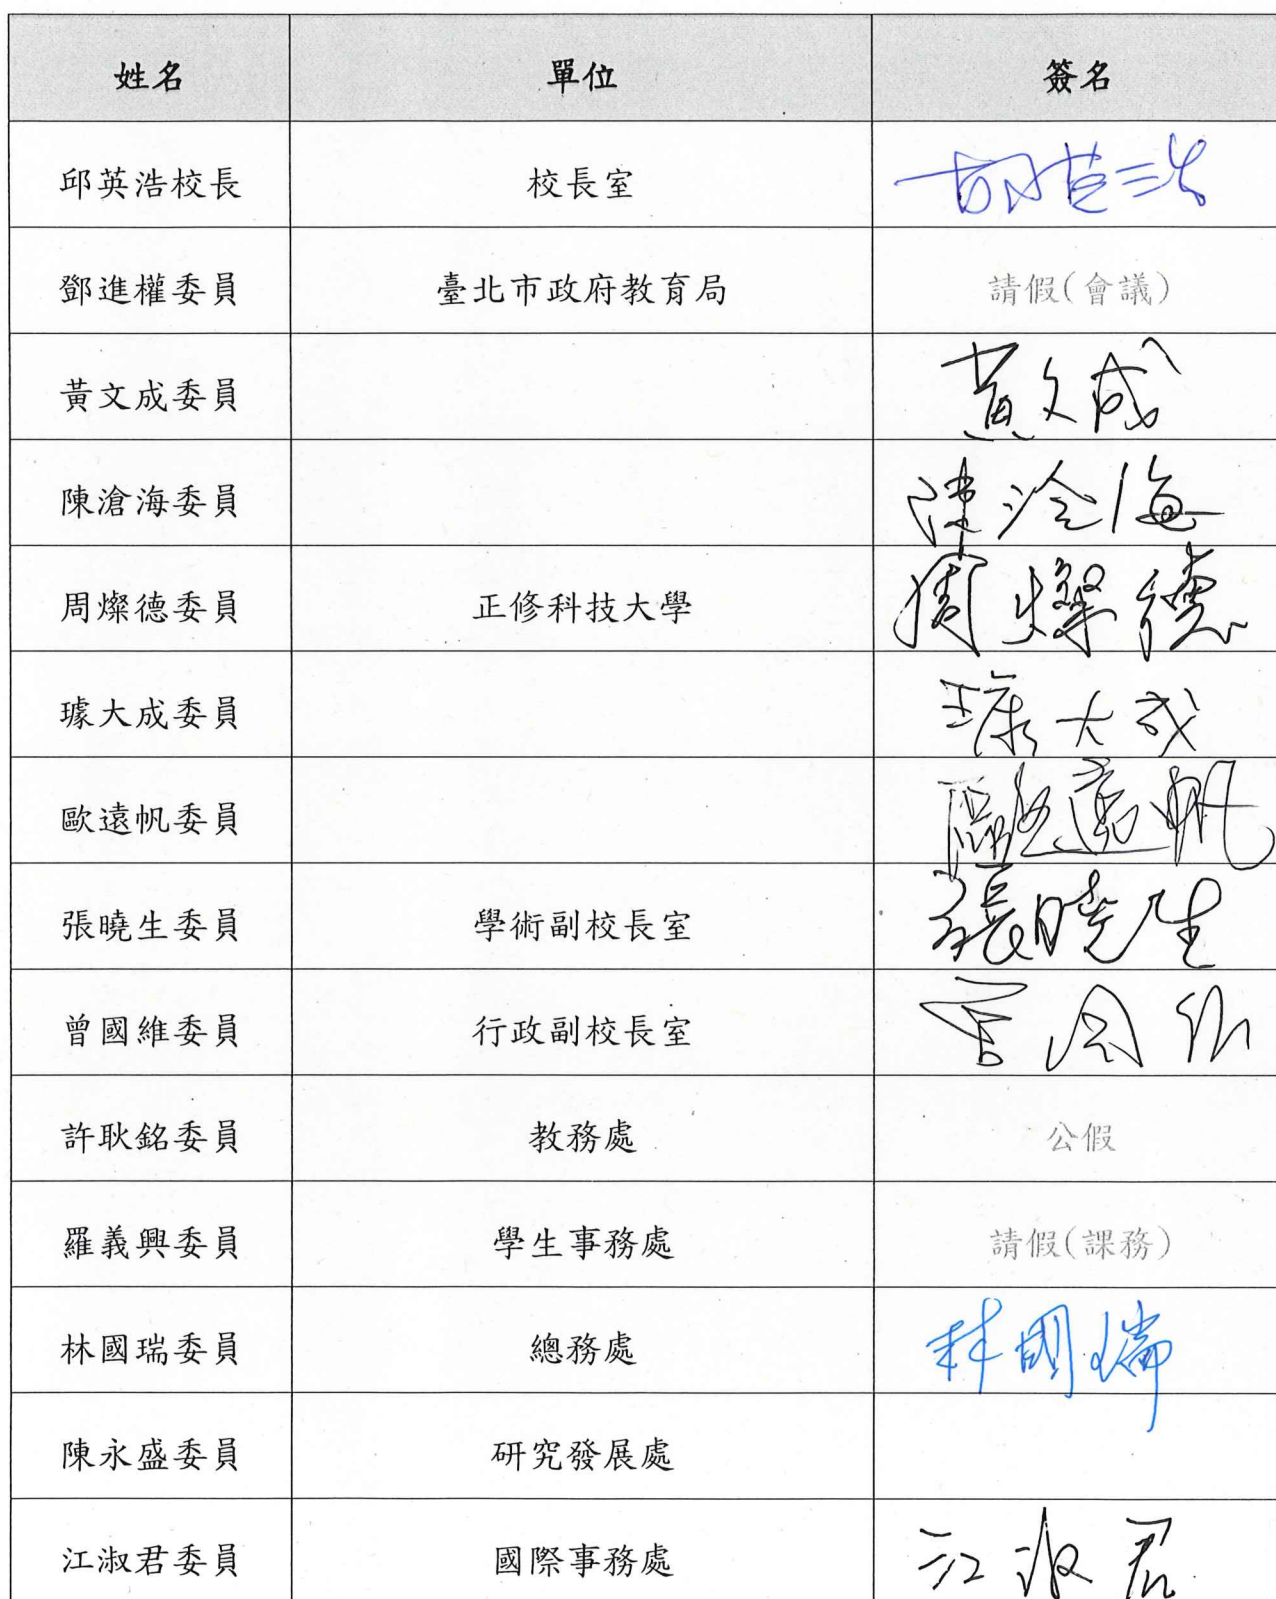 姓名 單位 簽名
邱英浩校長 校長室 邱英浩
鄧進權委員 臺北市政府教育局 請假(會議)
黃文成委員 黃文成
陳滄海委員 陳滄海
周燦德委員 正修科技大學 周燦德
璩大成委員 璩大成
歐遠帆委員 歐遠帆
張曉生委員 學術副校長室 張曉生
曾國維委員 行政副校長室 曾國維
許耿銘委員 教務處 公假
羅義興委員 學生事務處 請假(課務)
林國瑞委員 總務處 林國瑞
陳永盛委員 研究發展處
江淑君委員 國際事務處 江淑君